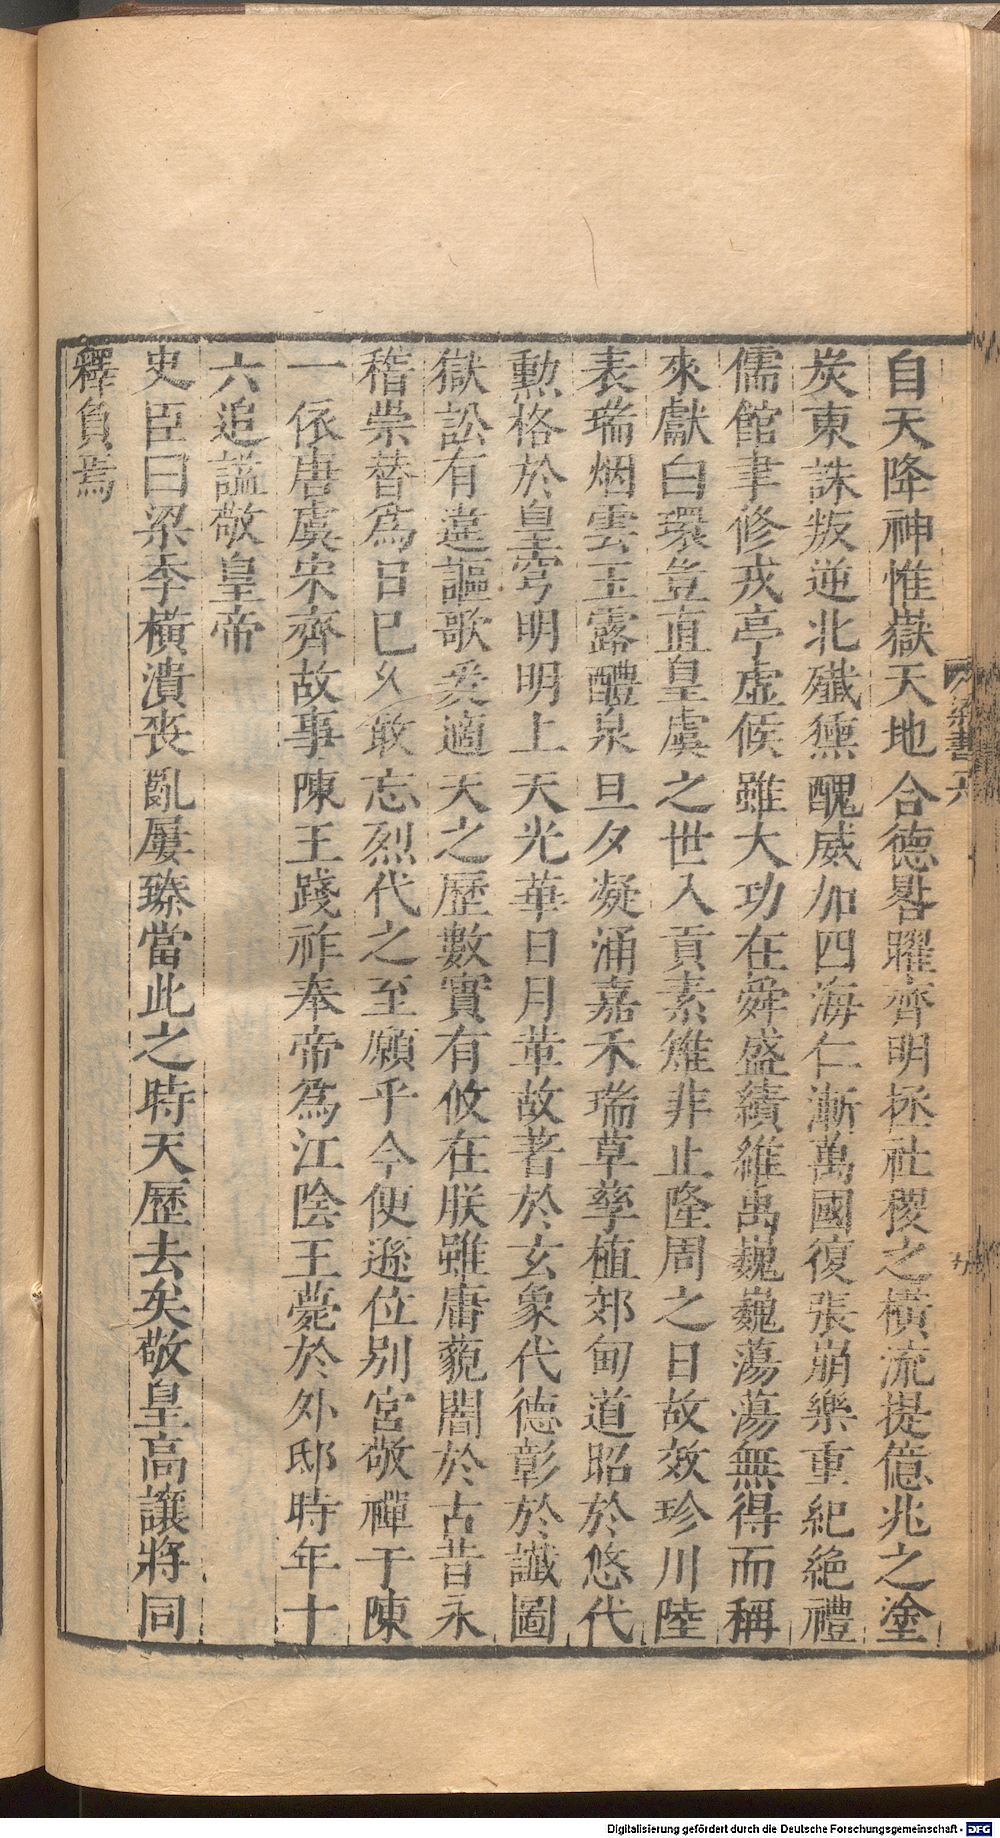 自天降神惟嶽天地合德晷曜齊明拯社稷之橫流提億兆之塗
炭東誅叛逆北殲獯醜威加四海仁漸萬國復張崩樂重紀絶禮
儒館聿修戎亭虛候雖大功在舜盛績維禹巍巍蕩蕩無得而稱
來獻白環豈直皇虞之世入貢素雉非止隆周之日故效珍川陸
表瑞烟雲玉露醴泉旦夕凝涌嘉禾瑞草孳植郊甸道昭於悠代
勲格於皇穹明明上天光華日月革故著於玄象代德彰於讖圖
獄訟有違謳歌爰適天之歷數實有攸在朕雖庸藐闇於古昔永
稽崇替爲日已久敢忘烈代之至願乎今便遜位别宮敬禪于陳
一依唐虞宋齊故事陳王踐祚奉帝爲江陰王薨於外邸時年十
六追謚敬皇帝
史臣曰梁季橫潰喪亂屢臻當此之時天歷去矣敬皇高讓將同
釋負焉
梁書六
Digitalisierung gefördert durch die Deutsche Forschungsgemeinschaft - DFG